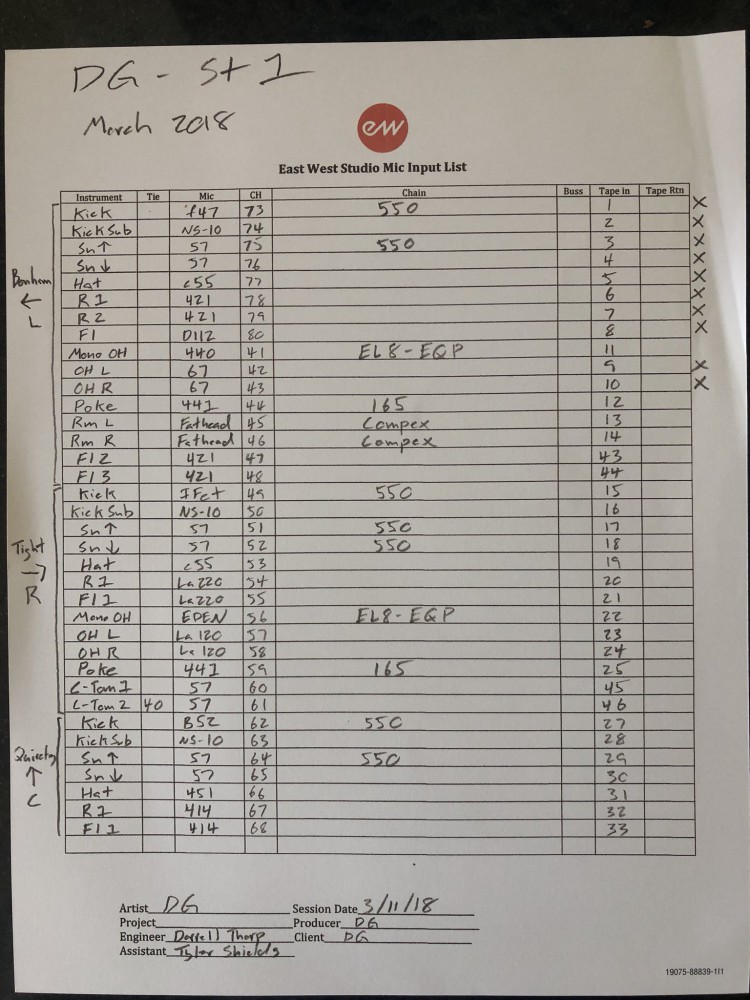 DG - St 1
March 2018
ew
East West Studio Mic Input List
Instrument Tie Mic CH Chain Buss Tape in Tape Rtn
Kick f47 73 550 1 X
Kick Sub NS-10 74 2 X
Sn ↑ 57 75 550 3 X
Sn ↓ 57 76 4 X
Hat c55 77 5 X
Bonham ← L
R1 421 78 6 X
R2 421 79 7 X
Fl D112 80 8 X
Mono OH 440 41 EL8-EQP 11
OH L 67 42 9 X
OH R 67 43 10 X
Poke 441 44 165 12
Rm L Fathead 45 Compex 13
Rm R Fathead 46 Compex 14
Fl 2 421 47 43
Fl 3 421 48 44
Kick IFet 49 550 15
Kick Sub NS-10 50 16
Sn ↑ 57 51 550 17
Sn ↓ 57 52 550 18
Tight → R
Hat c55 53 19
R1 La220 54 20
Fl 1 La220 55 21
Mono OH EDEN 56 EL8-EQP 22
OH L La 120 57 23
OH R La 120 58 24
Poke 441 59 165 25
L-Tom 1 57 60 45
L-Tom 2 40 57 61 46
Kick B52 62 550 27
Kick Sub NS-10 63 28
↑ C
Sn ↑ 57 64 550 29
Sn ↓ 57 65 30
Hat 451 66 31
R1 414 67 32
Fl 1 414 68 33
Artist DG Session Date 3/11/18
Project Producer DG
Engineer Darrell Thorp Client DG
Assistant Tyler Shields
19075-88839-1I1